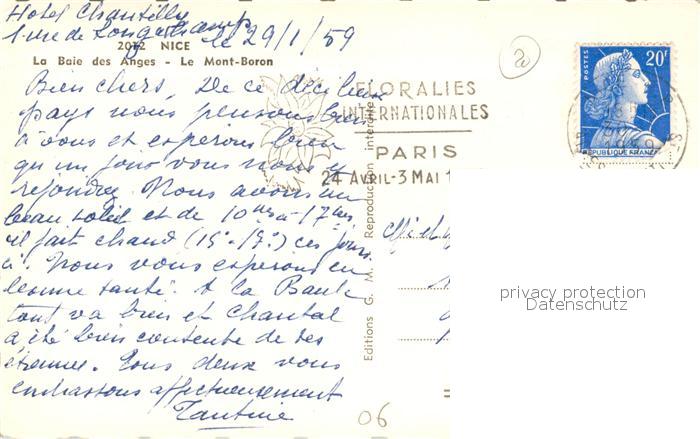 Hotel Chantilly
1 rue de Longchamp
le 29/1/59
2012 NICE
La Baie des Anges - Le Mont-Boron
Bien chers, De ce délicieux
pays nous pensons bien
à vous et espérons bien
qu'un jour vous nous y
rejoindrez. Nous avons un
beau soleil et de 10 hes à 17 hes
il fait chaud (15°-17°) ces jours
ci. Nous vous espérons en
bonne santé. A la Baule
tout va bien et Chantal
a été bien contente de ses
étrennes. Tous deux vous
embrassons affectueusement
Tantine
06
2
FLORALIES
INTERNATIONALES
PARIS
24 AVRIL-3 MAI 1
Editions G. M. Reproduction interdite
POSTES
20F
REPUBLIQUE FRANÇAISE
1959
privacy protection
Datenschutz